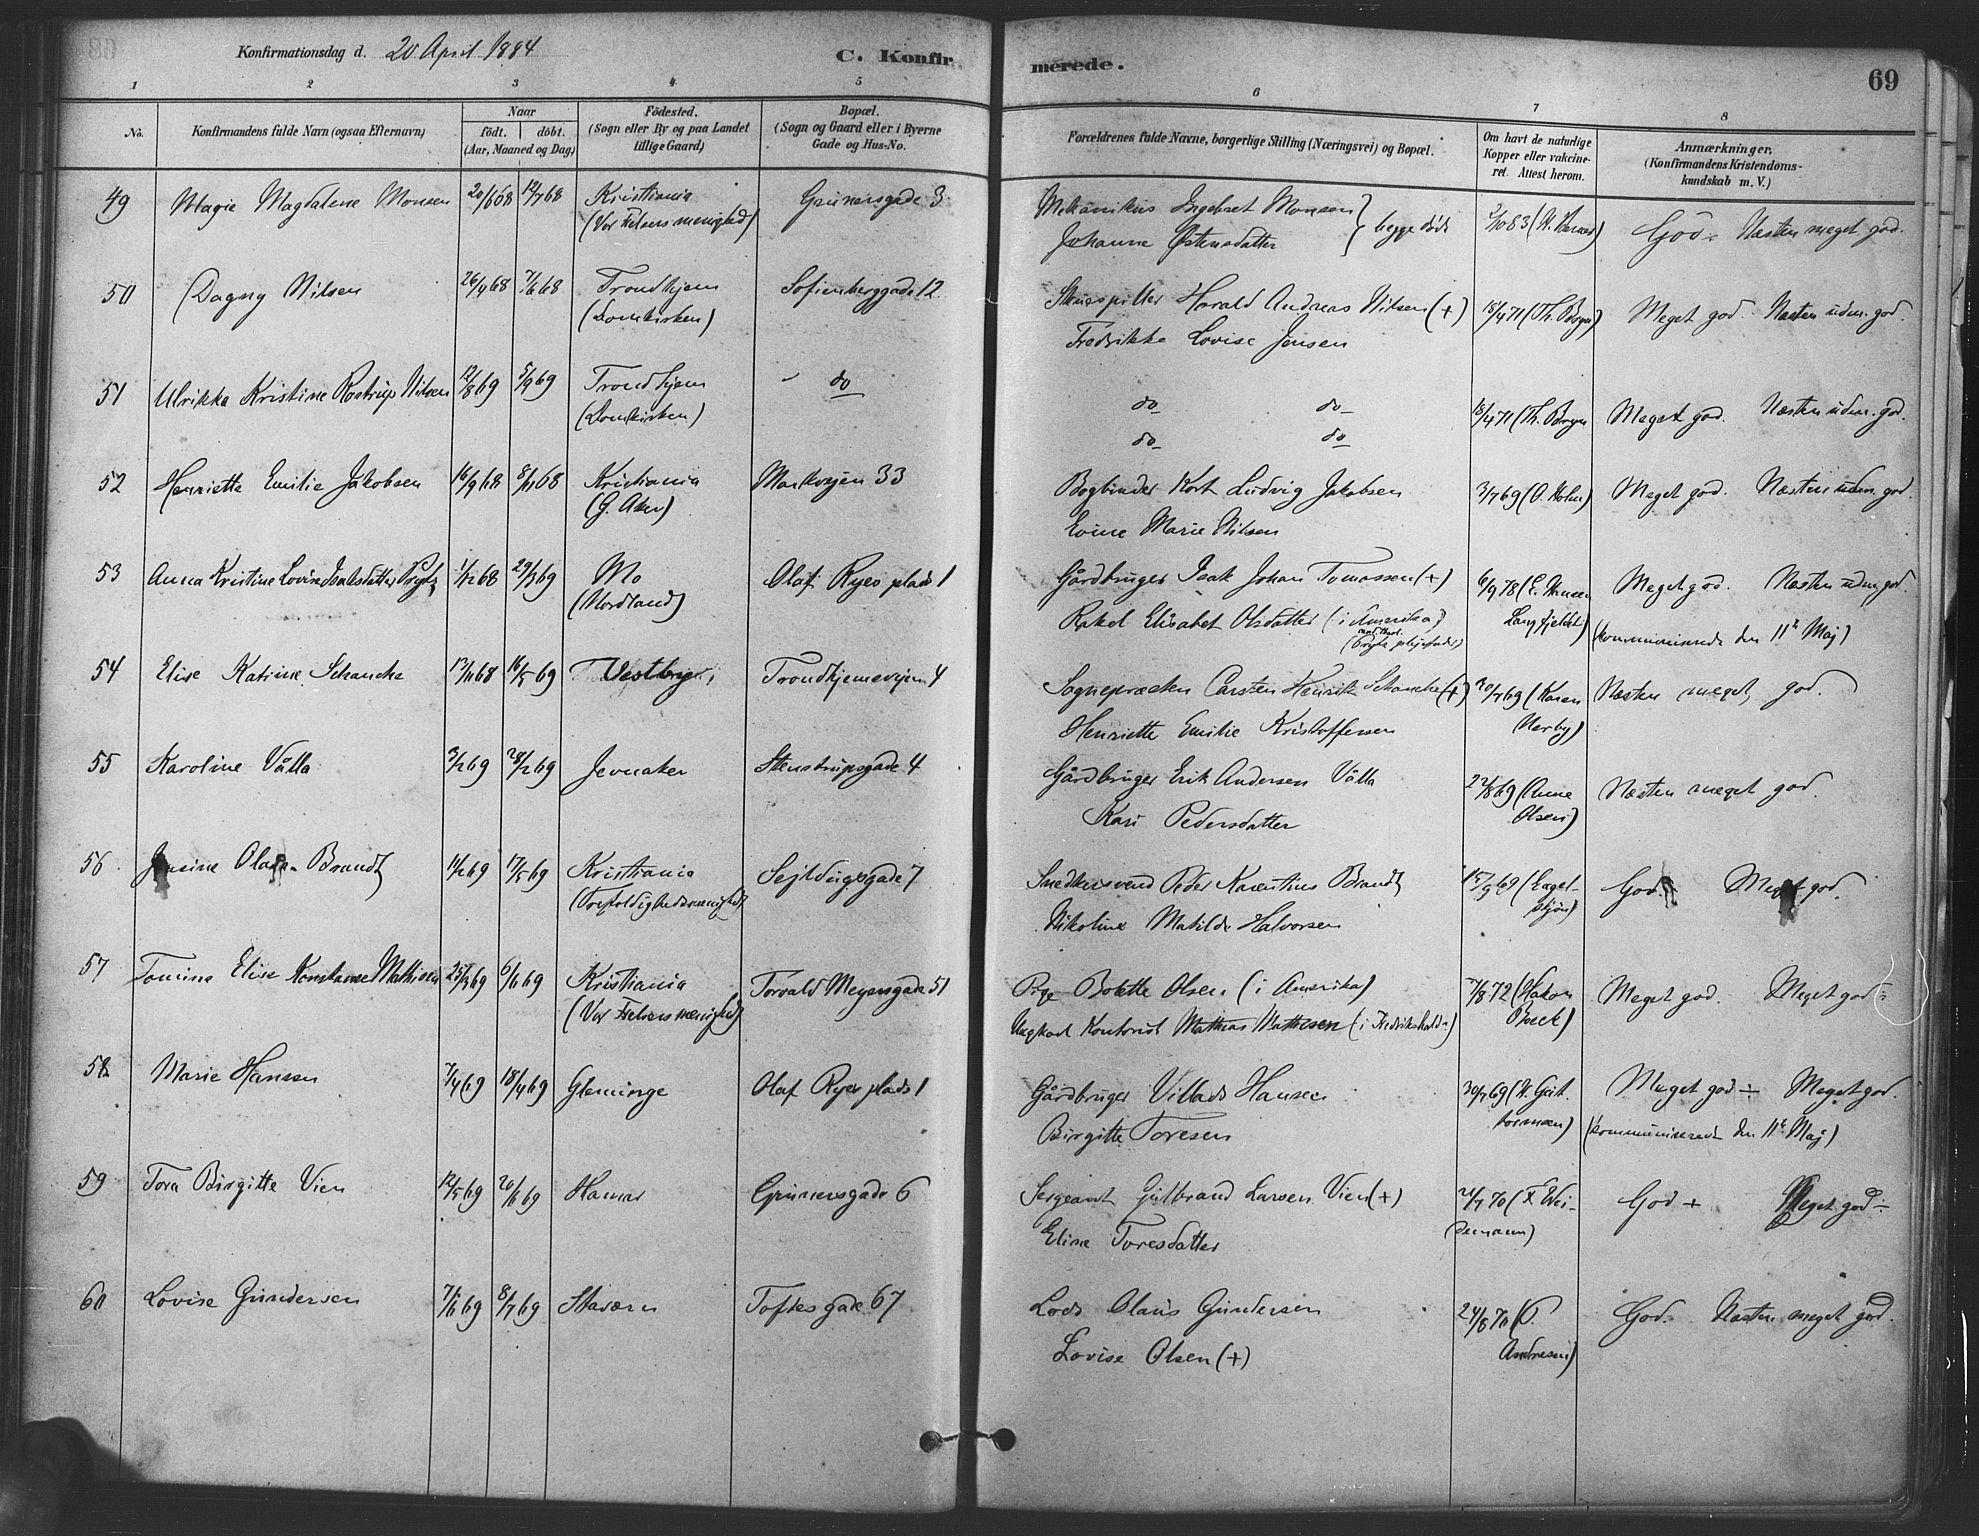 Konfirmationsdag d. 20 April 1884
C. Konfirmerede.
69
1 2 3 4 5 6 7 8
No.
Konfirmandens fulde Navn (ogsaa Efternavn)
Naar
födt. döbt.
(Aar, Maaned og Dag)
Födested.
(Sogn eller By og paa Landet
tillige Gaard)
Bopæl.
(Sogn og Gaard eller i Byerne
Gade og Hus-No.
Forældrenes fulde Navne, borgerlige Stilling (Næringsvei) og Bopæl.
Om havt de naturlige
Kopper eller vakcine-
ret. Attest herom.
Anmærkninger.
(Konfirmandens Kristendoms-
kundskab m. V.)
49 Magie Magdalene Monsen 20/6 68 12/7 68 Kristiania Grünersgade 3 Mekanikus Ingebret Monsen } begge døde
(Vor Frelsers menighed) Johanne Østensdatter God ÷ Næsten meget god.
50 Dagny Nilsen 26/4 68 7/6 68 Trondhjem Sofienberggade 12 Skuespiller Harald Andreas Nilsen (+) 18/4 71 (Th. Borgen) Meget god Næsten udm. god.
(Domkirken) Fredrikke Lovise Jensen
51 Ulrikka Kristine Rostrup Nilsen 12/8 69 5/9 69 Trondhjem do do do 18/4 71 (Th. Borgen Meget god. Næsten udm. god.
(Domkirken) do do
52 Henriette Emilie Jakobsen 16/9 68 8/11 68 Kristiania Markvejen 33 Bogbinder Kort Ludvig Jakobsen 3/7 69 (O. Holm) Meget god. Næsten udm. god.
(G. Aker) Evine Marie Nilsen
53 Anna Kristine Lovise Isaksdatter Prytz 1/12 68 29/3 69 Mo Olaf Ryes plads 1 Gårdbruger Isak Johan Tomassen (+) 6/9 78 (E. Hansen Meget god. Næsten udm. god
(Nordland) Rakel Elisabet Olsdatter (i Amerika) Langfjeldet) (kommunicerede den 11te Maj)
54 Elise Katrine Schancke 13/11 68 16/5 69 Vestby Trondhjemsvejen 4 Sognepræsten Carsten Henrik Schancke (+) 30/7 69 (Karen Næsten meget god.
Henriette Emilie Kristoffersen Nerby)
55 Karoline Vålla 3/2 69 28/2 69 Jevnaker Stenstrupsgade 4 Gårdbruger Erik Andersen Vålla 22/8 69 (Anne Næsten meget god.
Kari Pedersdatter Olsen)
56 Brandt 17/5 69 Kristiania Sejldugsgade 7 Snedkersvend Peder Brandt 15/9 69 (Engel- God. Meget god.
(Trefoldighedsmenighed) Nikoline Matilde Halvorsen
57 Tomine Elise Konstanse Mathisen 25/3 69 6/6 69 Kristiania Torvald Meyersgade 51 Pige Bolette Olsen (i Amerika) 7/8 72 (Håkon Meget god. Meget god ÷
(Vor Frelsers menighed) Ungkarl Kontorist Mathias Mathisen (i Fredrikshald) Beck)
58 Marie Hansen 7/4 69 18/4 69 Gleminge Olaf Ryes plads 1 Gårdbruger Villads Hansen 30/7 69 Meget god ÷ Meget god.
Birgitte Toresen (kommunicerede den 11te Maj)
59 Tora Birgitte Vien 12/5 69 20/6 69 Hamar Grünersgade 6 Sergeant Gulbrand Larsen Vien (+) God + Meget god ÷
Eline Toresdatter
60 Lovise Gundersen 7/6 69 8/7 69 Staværn Toftesgade 67 Lods Olaus Gundersen 24/8 70 (O. God. Næsten meget god.
Lovise Olsen (+) Andresen)